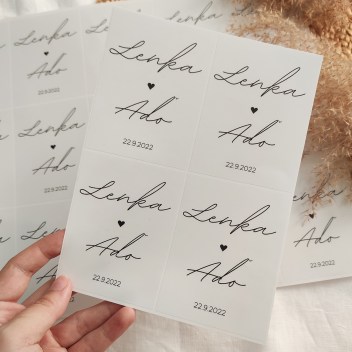 Lenka
♥
Ado
22.9.2022
Lenka
♥
Ado
22.9.2022
Lenka
♥
Ado
22.9.2022
Lenka
♥
Ado
22.9.2022
Lenka
Ado
22.9.2022
Lenka
♥
Ado
22.9.2022
Ado
22.9.2022